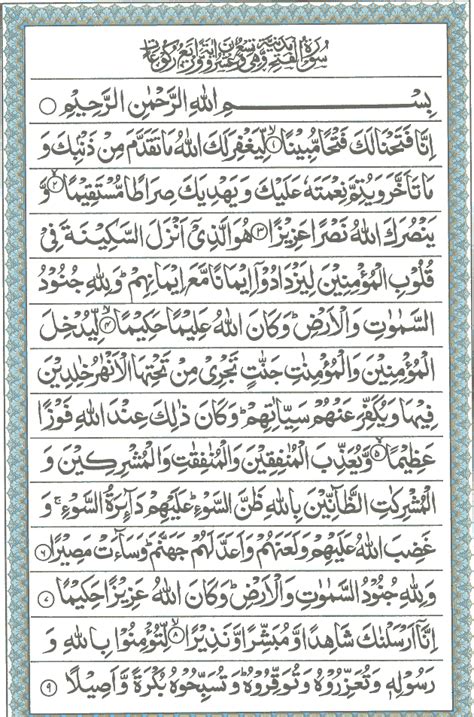 سورة الفتح مدنية وهي تسع وعشرون اية واربع ركوعات
بِسْمِ اللهِ الرَّحْمٰنِ الرَّحِيْمِ ○
اِنَّا فَتَحْنَا لَكَ فَتْحًا مُّبِيْنًا ۙ﴿۱﴾ لِّيَغْفِرَ لَكَ اللهُ مَا تَقَدَّمَ مِنْ ذَنْۢبِكَ وَ
مَا تَاَخَّرَ وَيُتِمَّ نِعْمَتَهٗ عَلَيْكَ وَ يَهْدِيَكَ صِرَاطًا مُّسْتَقِيْمًا ۙ﴿۲﴾ وَّ
يَنْصُرَكَ اللهُ نَصْرًا عَزِيْزًا ﴿۳﴾ هُوَ الَّذِيْۤ اَنْزَلَ السَّكِيْنَةَ فِيْ
قُلُوْبِ الْمُؤْمِنِيْنَ لِيَزْدَادُوْۤا اِيْمَانًا مَّعَ اِيْمَانِهِمْ ؕ وَلِلّٰهِ جُنُوْدُ
السَّمٰوٰتِ وَالْاَرْضِ ؕ وَكَانَ اللهُ عَلِيْمًا حَكِيْمًا ۙ﴿۴﴾ لِّيُدْخِلَ
الْمُؤْمِنِيْنَ وَالْمُؤْمِنٰتِ جَنّٰتٍ تَجْرِيْ مِنْ تَحْتِهَا الْاَنْهٰرُ خٰلِدِيْنَ
فِيْهَا وَيُكَفِّرَ عَنْهُمْ سَيِّاٰتِهِمْ ؕ وَكَانَ ذٰلِكَ عِنْدَ اللهِ فَوْزًا
عَظِيْمًا ۙ﴿۵﴾ وَّيُعَذِّبَ الْمُنٰفِقِيْنَ وَالْمُنٰفِقٰتِ وَالْمُشْرِكِيْنَ وَ
الْمُشْرِكٰتِ الظَّآنِّيْنَ بِاللهِ ظَنَّ السَّوْءِ ؕ عَلَيْهِمْ دَآئِرَةُ السَّوْءِ ۚ وَ
غَضِبَ اللهُ عَلَيْهِمْ وَلَعَنَهُمْ وَاَعَدَّ لَهُمْ جَهَنَّمَ ؕ وَسَآءَتْ مَصِيْرًا ﴿۶﴾
وَلِلّٰهِ جُنُوْدُ السَّمٰوٰتِ وَالْاَرْضِ ؕ وَكَانَ اللهُ عَزِيْزًا حَكِيْمًا ﴿۷﴾
اِنَّاۤ اَرْسَلْنٰكَ شَاهِدًا وَّمُبَشِّرًا وَّنَذِيْرًا ۙ﴿۸﴾ لِّتُؤْمِنُوْا بِاللهِ وَ
رَسُوْلِهٖ وَتُعَزِّرُوْهُ وَتُوَقِّرُوْهُ ؕ وَتُسَبِّحُوْهُ بُكْرَةً وَّاَصِيْلًا ﴿۹﴾